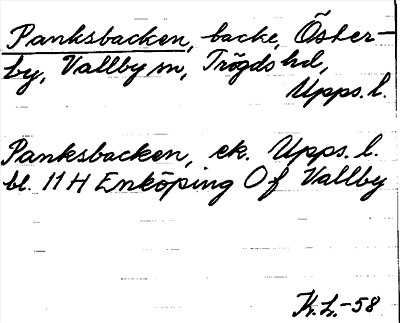 Panksbacken, backe, Öster-
by, Vallby sn, Trögds hd,
Upps. l.
Panksbacken, ek. Upps. l.
bl. 11 H Enköping Of Vallby
K.L.-58